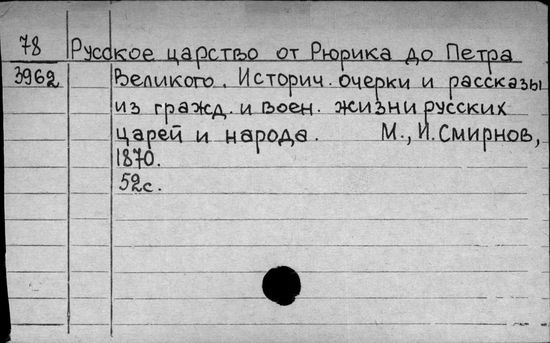 78 Русское царство от Рюрика до Петра
3962 Великого. Историч. очерки и рассказы
из гражд. и воен. жизни русских
царей и народа. М., И. Смирнов,
1870.
52с.